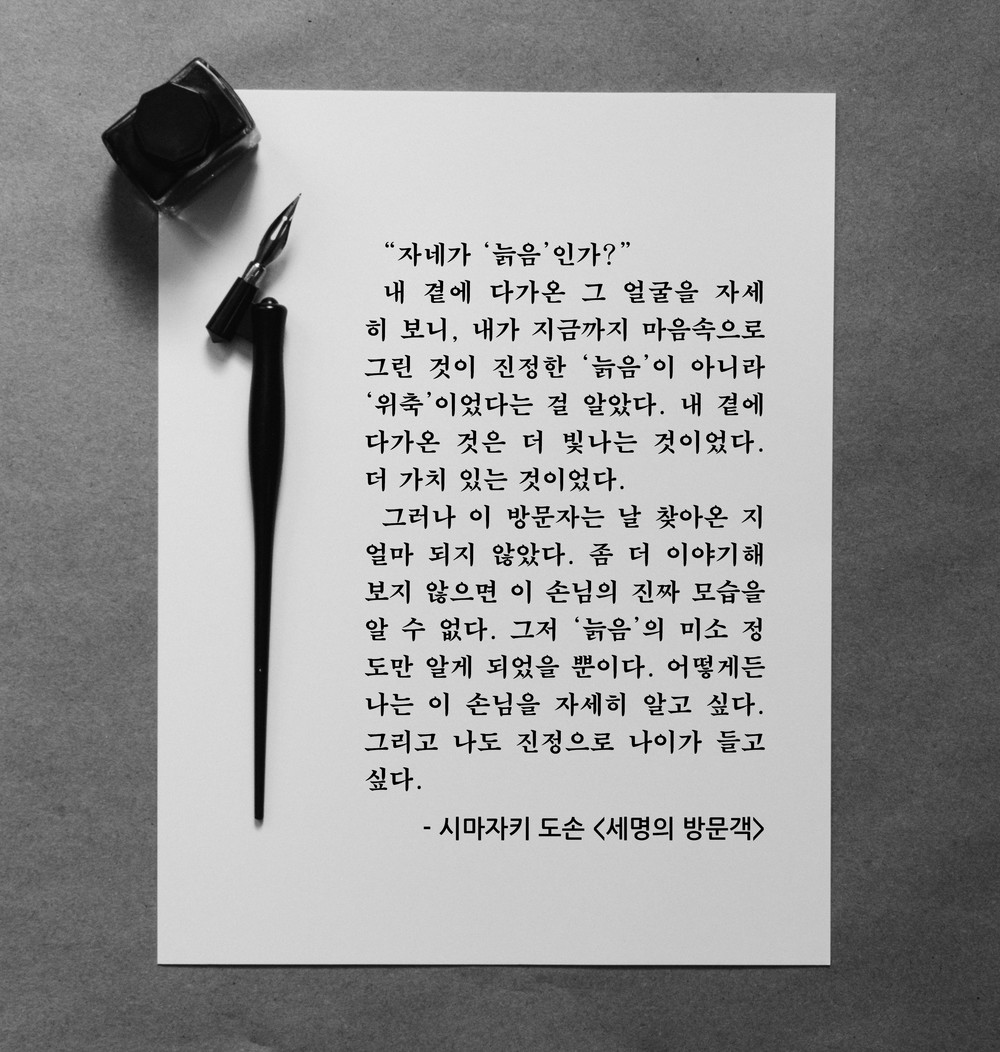 “자네가 ‘늙음’인가?”
내 곁에 다가온 그 얼굴을 자세
히 보니, 내가 지금까지 마음속으로
그린 것이 진정한 ‘늙음’이 아니라
‘위축’이었다는 걸 알았다. 내 곁에
다가온 것은 더 빛나는 것이었다.
더 가치 있는 것이었다.
그러나 이 방문자는 날 찾아온 지
얼마 되지 않았다. 좀 더 이야기해
보지 않으면 이 손님의 진짜 모습을
알 수 없다. 그저 ‘늙음’의 미소 정
도만 알게 되었을 뿐이다. 어떻게든
나는 이 손님을 자세히 알고 싶다.
그리고 나도 진정으로 나이가 들고
싶다.
- 시마자키 도손 <세명의 방문객>